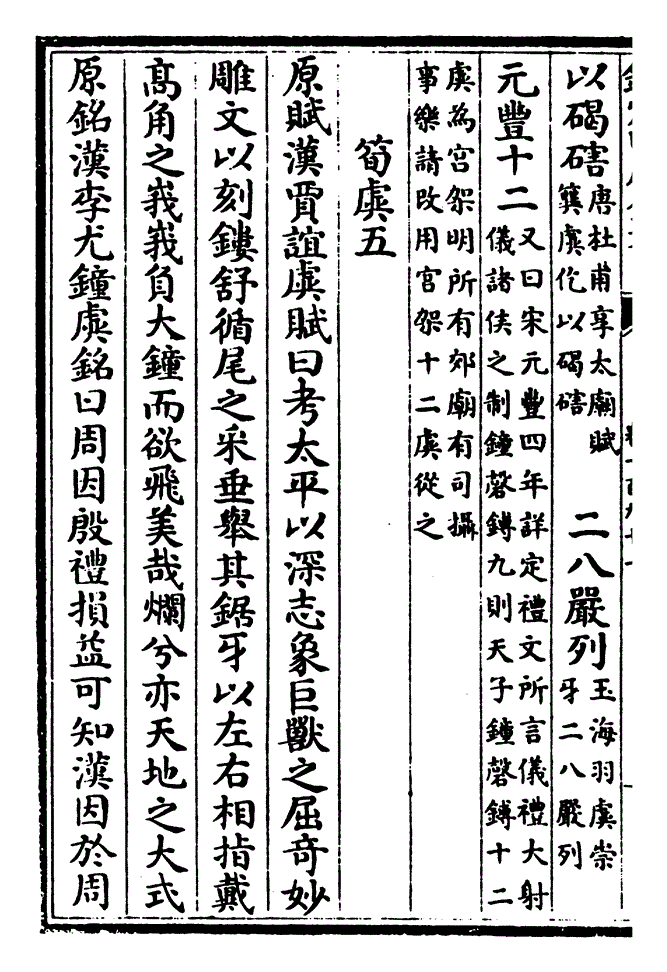 以碣磍唐杜甫享太廟賦簨虡仡以碣磍 二八嚴列玉海羽虡崇牙二八嚴列
元豐十二又曰宋元豐四年詳定禮文所言儀禮大射儀諸侯之制鐘磬鎛九則天子鐘磬鎛十二
虡為宫架明所有郊廟有司攝事樂請改用宫架十二虡從之
筍虡五
原賦漢賈誼虡賦曰考太平以深志象巨獸之屈奇妙
雕文以刻鏤舒循尾之采垂舉其鋸牙以左右相指戴
高角之峩峩負大鐘而欲飛美哉爛兮亦天地之大式
原銘漢李尤鐘虡銘曰周因殷禮損益可知漢因於周